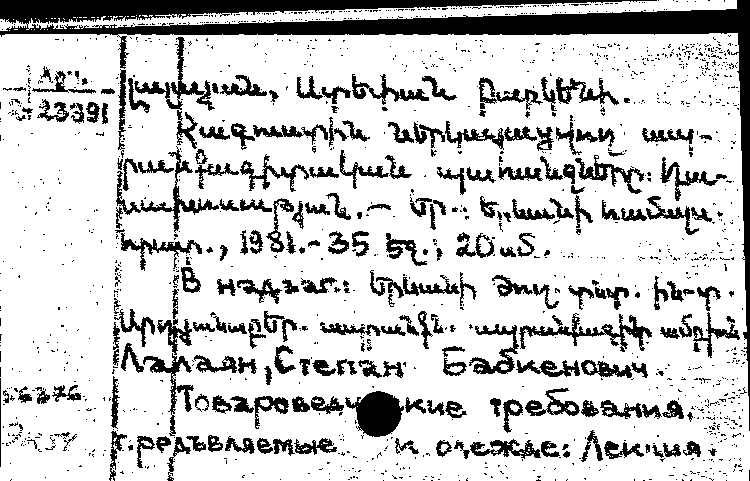 Արմ.
23391
Լալայան, Ստեփան Բաբկենի.
Հագուստին ներկայացվող ապ-
րանքագիտական պահանջները: Դա-
սախոսություն. – Եր.: Երևանի համալս.
հրատ., 1981. - 35 էջ.; 20 սմ.
В надзаг.: Երևանի ժող. տնտ. ին-տ.
ապրանքն. ապրանքագիտ. ամբիոն.
Лалаян, Степан Бабкенович.
Товароведческие требования,
предъявляемые к одежде: Лекция.
56376